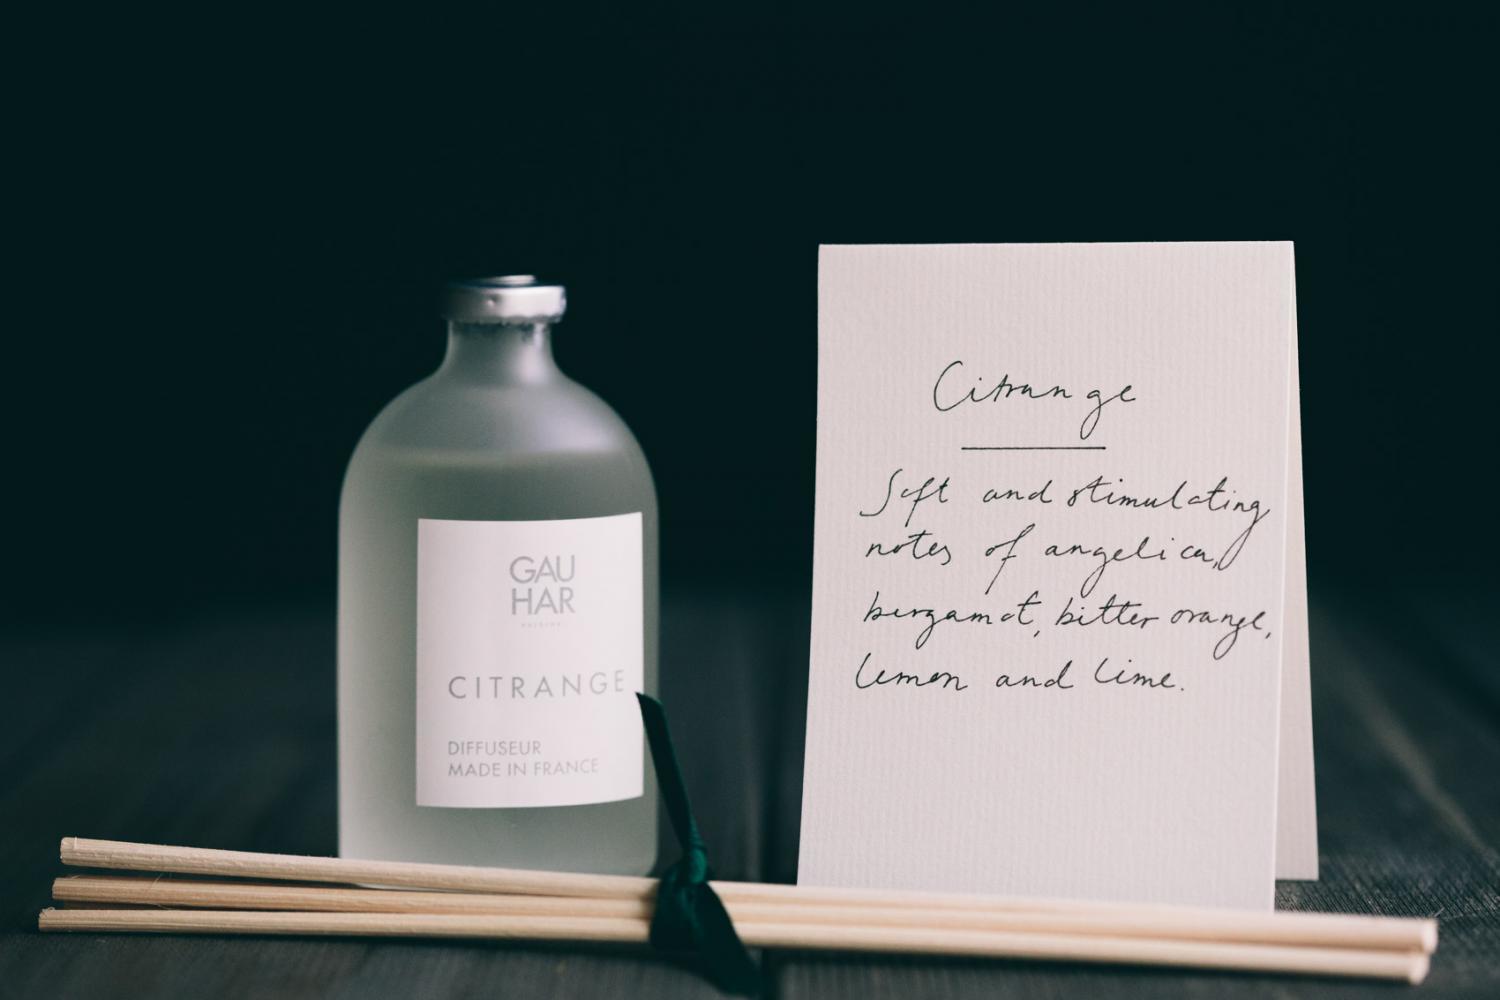 GAU
HAR
CITRANGE
DIFFUSEUR
MADE IN FRANCE
Citrange
Soft and stimulating
notes of angelica,
bergamot, bitter orange,
lemon and lime.